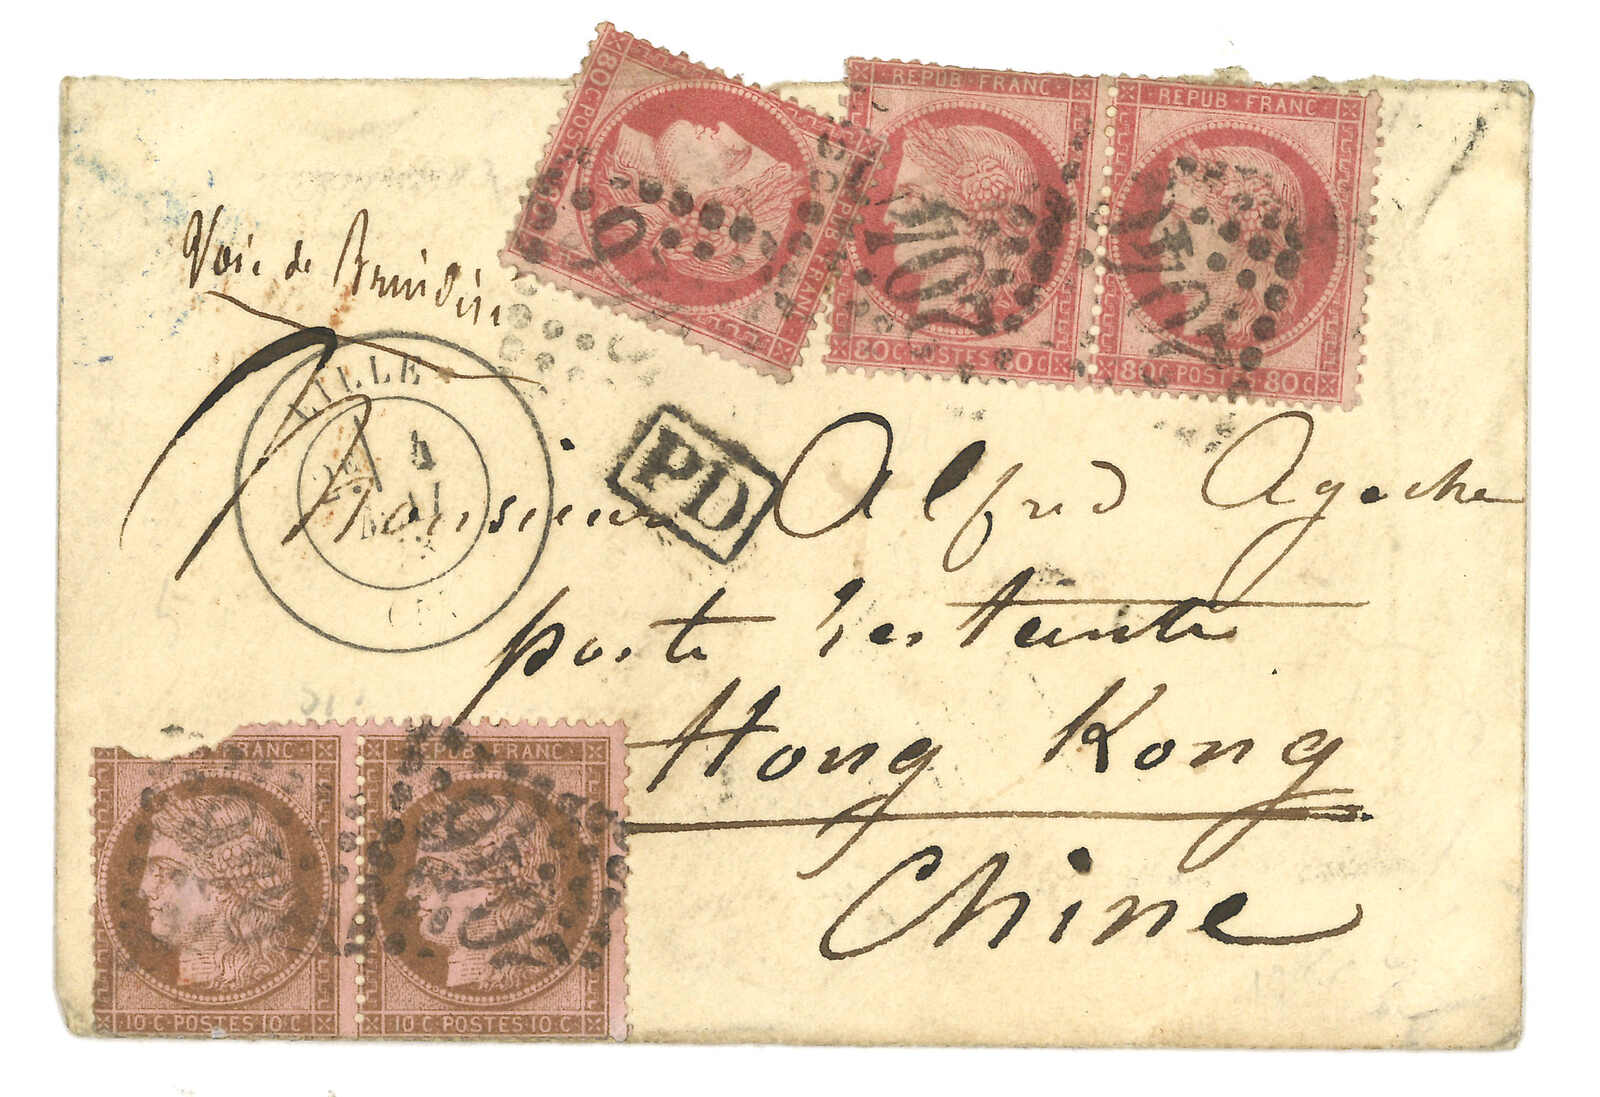 80 C POSTES 80 C
REPUB FRANC
REPUB · FRANC ·
REPUB · FRANC ·
80 C POSTES 80 C
80 C POSTES 80 C
Voie de Brindisi
LILLE
2E 4
MAI
PD
Monsieur Alfred Agache
poste restante
Hong Kong
Chine
FRANC
REPUB · FRANC
10 · C · POSTES · 10 · C
10 · C · POSTES · 10 · C